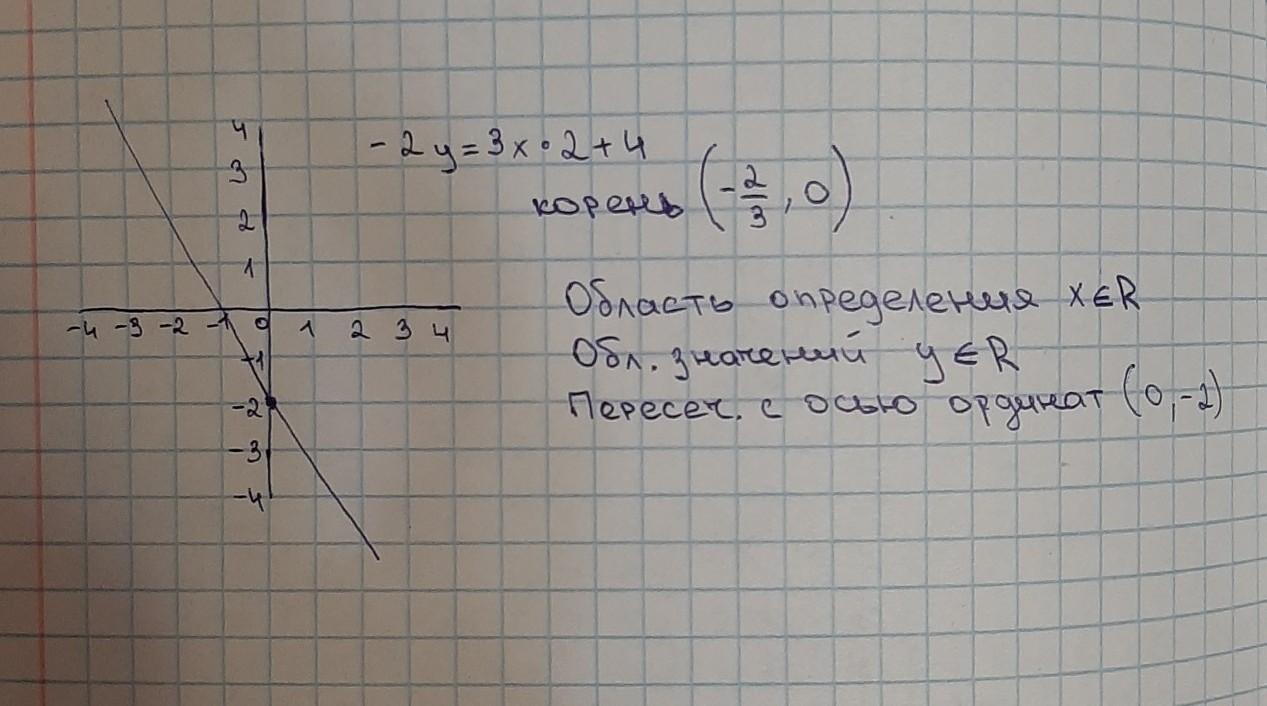 4
3
2
1
-4 -3 -2 -1 0 1 2 3 4
-1
-2
-3
-4
-2y=3x·2+4
корень (-2/3, 0)
Область определения x∈R
Обл. значений y∈R
Пересеч. с осью ординат (0,-2)